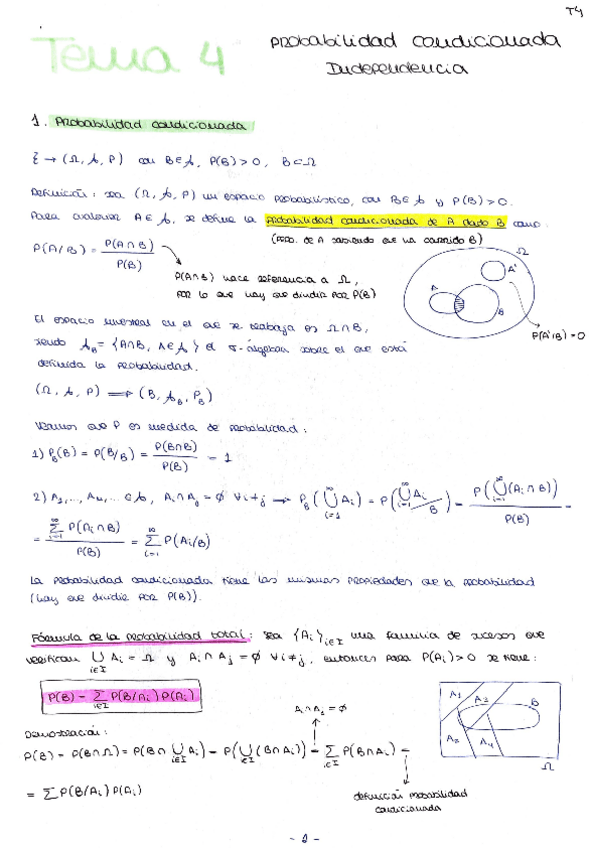 T4
Tema 4
Probabilidad condicionada
Independencia
1. Probabilidad condicionada
ξ → (Ω, 𝒜, P) con B∈𝒜, P(B)>0, B⊂Ω
Definición: sea (Ω, 𝒜, P) un espacio probabilístico, con B∈𝒜 y P(B)>0.
Para cualquier A∈𝒜, se define la probabilidad condicionada de A dado B como:
(prob. de A sabiendo que ha ocurrido B)
P(A/B) = P(A∩B) / P(B)
P(A∩B) hace referencia a Ω,
por lo que hay que dividir por P(B)
Ω
A'
A
B
P(A'/B)=0
El espacio muestral en el que se trabaja es Ω∩B,
siendo 𝒜_B = {A∩B, A∈𝒜} el σ-álgebra sobre el que está
definida la probabilidad.
(Ω, 𝒜, P) ⟹ (B, 𝒜_B, P_B)
Veamos que P es medida de probabilidad:
1) P_B(B) = P(B/B) = P(B∩B) / P(B) = 1
2) A₁,..., Aₙ,... ∈𝒜, Aᵢ∩Aⱼ=∅ ∀i≠j → P_B(⋃_{i=1}^∞ Aᵢ) = P(⋃_{i=1}^∞ Aᵢ/B) = P(⋃_{i=1}^∞ (Aᵢ∩B)) / P(B) =
= Σ_{i=1}^∞ P(Aᵢ∩B) / P(B) = Σ_{i=1}^∞ P(Aᵢ/B)
La probabilidad condicionada tiene las mismas propiedades que la probabilidad
(hay que dividir por P(B)).
Fórmula de la probabilidad total: sea {Aᵢ}_{i∈I} una familia de sucesos que
verifican ⋃_{i∈I} Aᵢ = Ω y Aᵢ∩Aⱼ=∅ ∀i≠j, entonces para P(Aᵢ)>0 se tiene:
P(B) = Σ_{i∈I} P(B/Aᵢ) P(Aᵢ)
A₁
A₂
B
A₃
A₄
Ω
Demostración:
Aᵢ∩Aⱼ=∅
P(B) = P(B∩Ω) = P(B∩⋃_{i∈I} Aᵢ) = P(⋃_{i∈I} (B∩Aᵢ)) = Σ_{i∈I} P(B∩Aᵢ) =
definición probabilidad
condicionada
= Σ P(B/Aᵢ) P(Aᵢ)